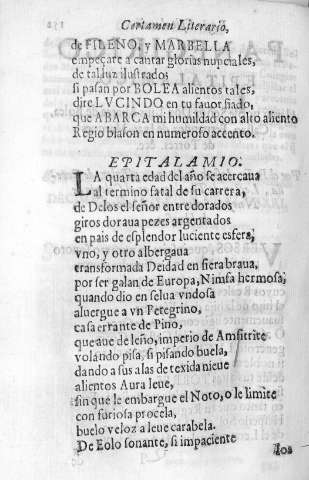 Certamen Literario,
de FILENO, y MARBELLA
empeçare a cantar glorias nupciales,
de tal luz ilustrados
si pasan por BOLEA alientos tales,
dire LVCINDO en tu fauor fiado,
que ABARCA mi humildad con alto aliento
Regio blason en numeroso accento.
EPITALAMIO.
LA quarta edad del año se acercaua
al termino fatal de su carrera,
de Delos el señor entre dorados
giros doraua pezes argentados
en pais de esplendor luciente esfera;
vno, y otro albergaua
transformada Deidad en fiera braua,
por ser galan de Europa, Nimfa hermosa;
quando dio en selua vndosa
aluergue a vn Peregrino,
casa errante de Pino,
que aue de leño, imperio de Amfitrite
volando pisa, si pisando buela,
dando a sus alas de texida nieue
alientos Aura leue,
sin que le embargue el Noto, o le limite
con furiosa procela,
buelo veloz a leue carabela.
De Eolo sonante, si impaciente
los